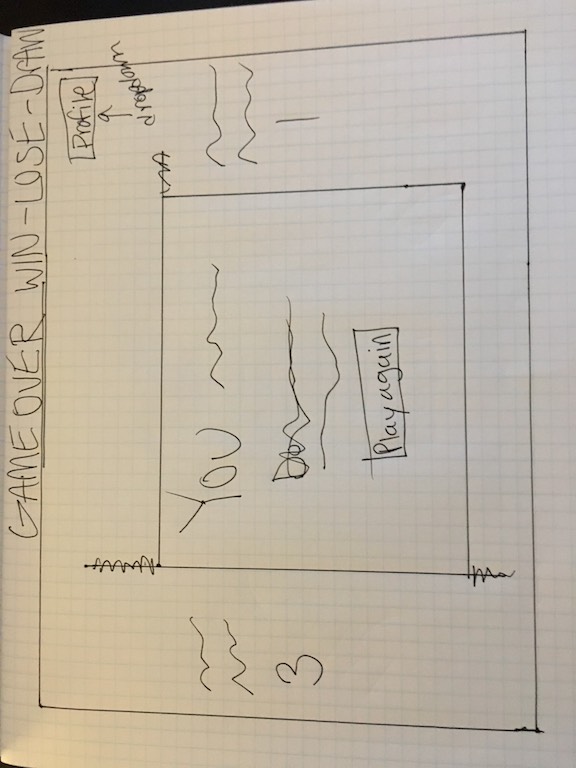 GAME OVER WIN-LOSE-DRAW
Profile
dropdown
3
YOU
1
Play again